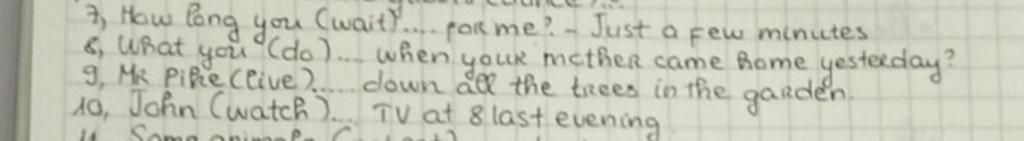 7, How long you (wait).... for me? - Just a few minutes
8, What you (do).... when your mother came home yesterday?
9, Mr Pike (live)..... down all the trees in the garden.
10, John (watch)... TV at 8 last evening